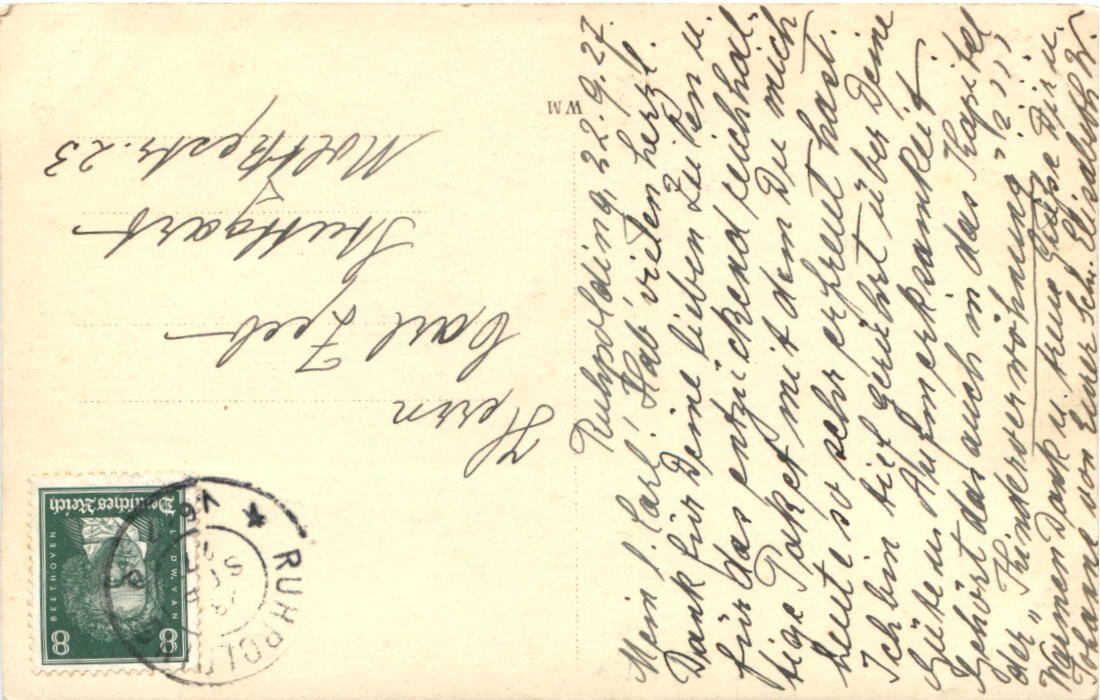 Ruhpolding, 22.9.27.
Mein l. Carl! Hab' vielen herzl.
Dank für Deine lieben Zeilen u.
für das entzückend reichhal-
tige Paket mit dem Du mich
heute so sehr erfreut hast.
Ich bin tief gerührt über Deine
Güte u. Aufmerksamkeit.
Gehört das auch in das Kapitel
der „Kinderverwöhnung"???
Warmen Dank u. treue Grüße Dir u.
Johanna von Eurer Schw. Elisabeth W.
W M
Herrn
Carl Zeeb
Stuttgart
Moltkestr. 23
Deutsches Reich
LUDW. VAN
BEETHOVEN
8 8
RUHPOLD